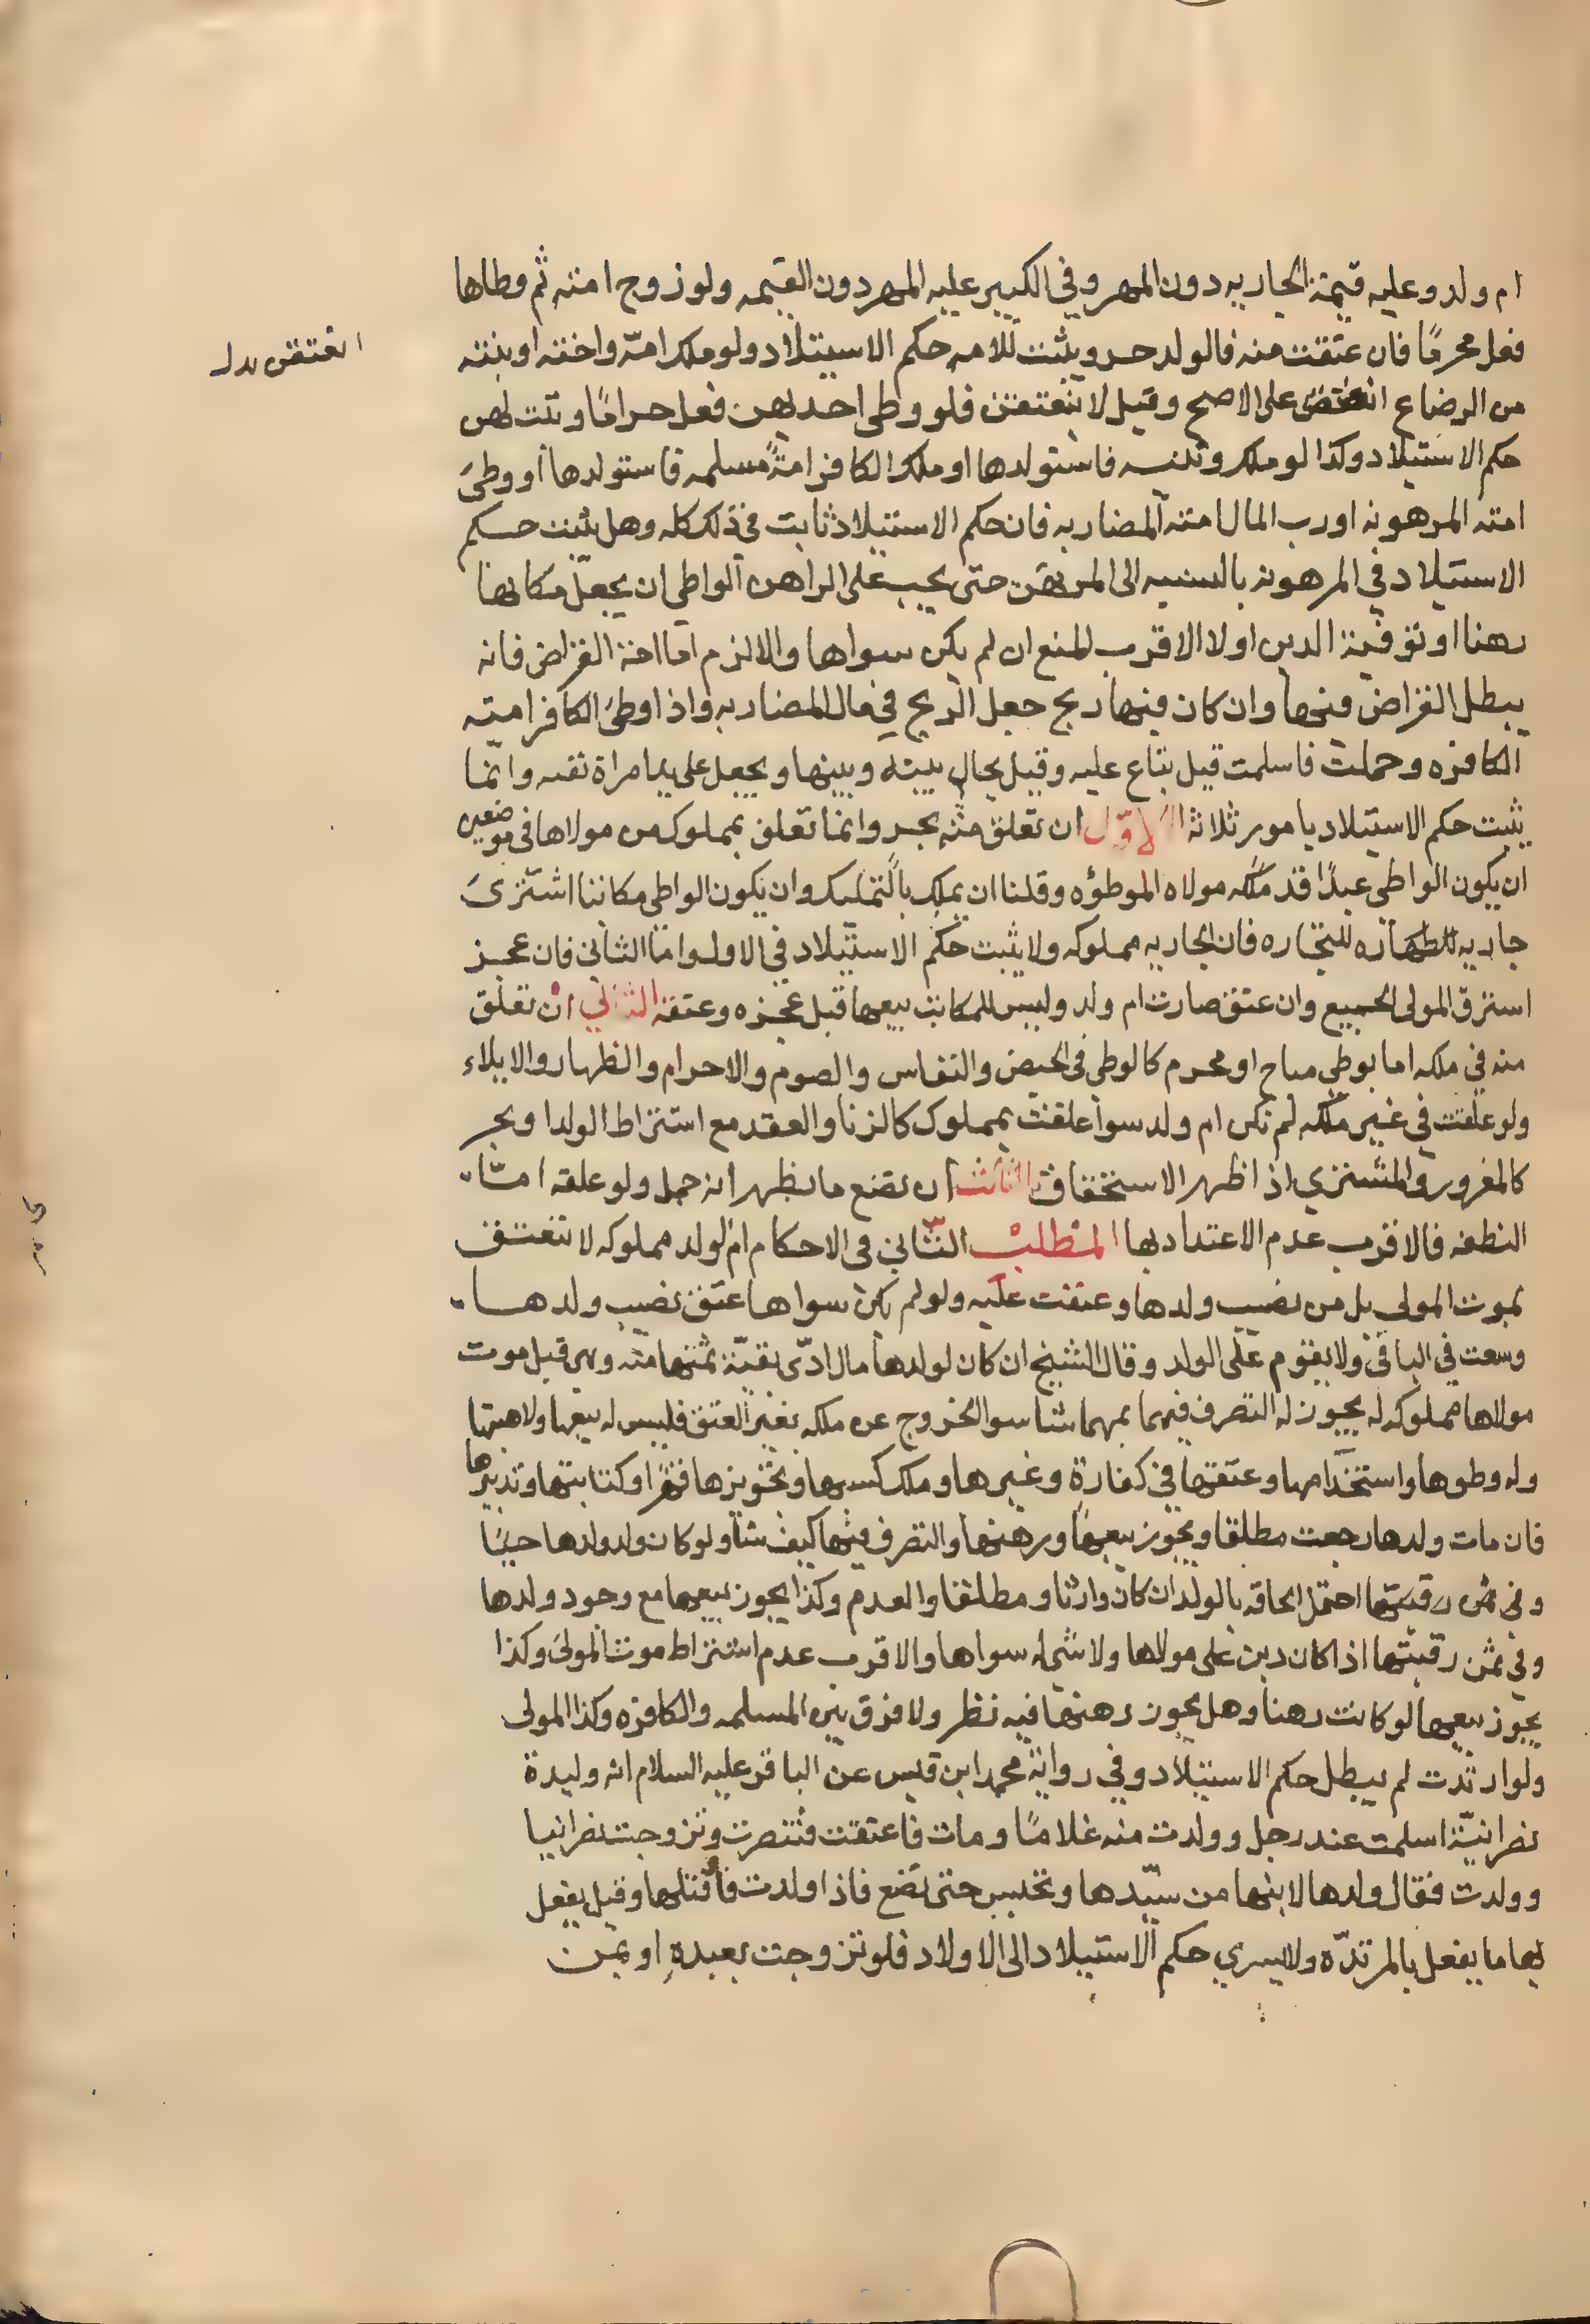 ام ولد وعليه قيمة الجاريه دون المهر وفي الكبير عليه المهر دون القيمه ولو زوج امته ثم وطاها
فعل محرمًا فان عتقت منه فالولد حر ويثبت للامه حكم الاستيلاد ولو ملك امه واخته او بنته
انعتقن بدل
من الرضاع انعتقن على الاصح وقيل لا تنعتقن فلو وطى احديهن فعل حرامًا وثبت لهن
حكم الاستيلاد وكذا لو ملك وثنيه فاستولدها او ملك الكافر امةً مسلمه فاستولدها او وطئ
امته المرهونه او رب المال امته المضاربه فان حكم الاستيلاد ثابت في ذلك كله وهل يثبت حكم
الاستيلاد في المرهونه بالنسبه الى المرتهن حتى يجب على الراهن الواطي ان يجعل مكانها
رهنا او توفية الدين اولا الاقرب المنع ان لم يكن سواها والا لزم اما امة القراض فانه
يبطل القراض فيها وان كان فيها ربح جعل الربح في مال المضاربه واذا وطئ الكافر امته
الكافره وحملت فاسلمت قيل تباع عليه وقيل يحال بينه وبينها ويجعل على يد امراة ثقه وانما
يثبت حكم الاستيلاد بامور ثلاثه الاول ان تعلق منه بحر وانما تعلق بمملوك من مولاها في موضعين
ان يكون الواطى عبدًا قد ملكه مولاه الموطؤه وقلنا انه يملك بالتمليك وان يكون الواطى مكاتبا اشترى
جاريه للتجاره فان الجاريه مملوكه ولا يثبت حكم الاستيلاد في الاول واما الثاني فان عجز
استرق المولى الجميع وان عتق صارت ام ولد وليس للمكاتب بيعها قبل عجزه وعتقه الثاني ان تعلق
منه في ملكه اما بوطي مباح او محرم كالوطى في الحيض والنفاس والصوم والاحرام والظهار والايلاء
ولو علقت في غير ملكه لم تكن ام ولد سوا علقت بمملوك كالزنا والعقد مع اشتراط الولد او بحر
كالمغرور والمشتري اذا ظهر الاستحقاق الثالث ان تضع ما يظهر انه حمل ولو علقه اما
النطفه فالاقرب عدم الاعتداد بها المطلب الثاني في الاحكام ام الولد مملوكه لا تنعتق
بموت المولى بل من نصيب ولدها وعتقت عليه ولو لم يكن سواها عتق نصيب ولدها
وسعت في الباقي ولا يقوم على الولد وقال الشيخ ان كان لولدها مال ادى بقية ثمنها منه وهي قبل موت
مولاها مملوكه له يجوز له التصرف فيها بمهما شا سوا الخروج عن ملكه بغير العتق فليس له بيعها ولا هبتها
وله وطوها واستخدامها وعتقها في كفارةٍ وغيرها وملك كسبها وتزويجها قهرًا وكتابتها وتدبيرها
فان مات ولدها رجعت مطلقا ويجوز بيعها ورهنها والتصرف فيها كيف شا ولو كان ولد ولدها حيًا
وفي ثمن رقبتها احتمل الحاقه بالولد ان كان وارثا ومطلقا والعدم وكذا يجوز بيعها مع وجود ولدها
وفي ثمن رقبتها اذا كان دين على مولاها ولا شي له سواها والاقرب عدم اشتراط موت المولى وكذا
يجوز بيعها لو كانت رهنا وهل يجوز رهنها فيه نظر ولا فرق بين المسلمه والكافره وكذا المولى
ولو ارتدت لم يبطل حكم الاستيلاد وفي رواية محمد ابن قيس عن الباقر عليه السلام انه وليدة
نصرانيّة اسلمت عند رجل وولدت منه غلامًا ومات فاعتقت فتنصرت وتزوجت نصرانيا
وولدت فقال ولدها لابنها من سيّدها وتحبس حتى تضع فاذا ولدت فاقتلها وقيل يفعل
بها ما يفعل بالمرتدّه ولا يسري حكم الاستيلاد الى الاولاد فلو تزوجت بعبدهِ او بمن